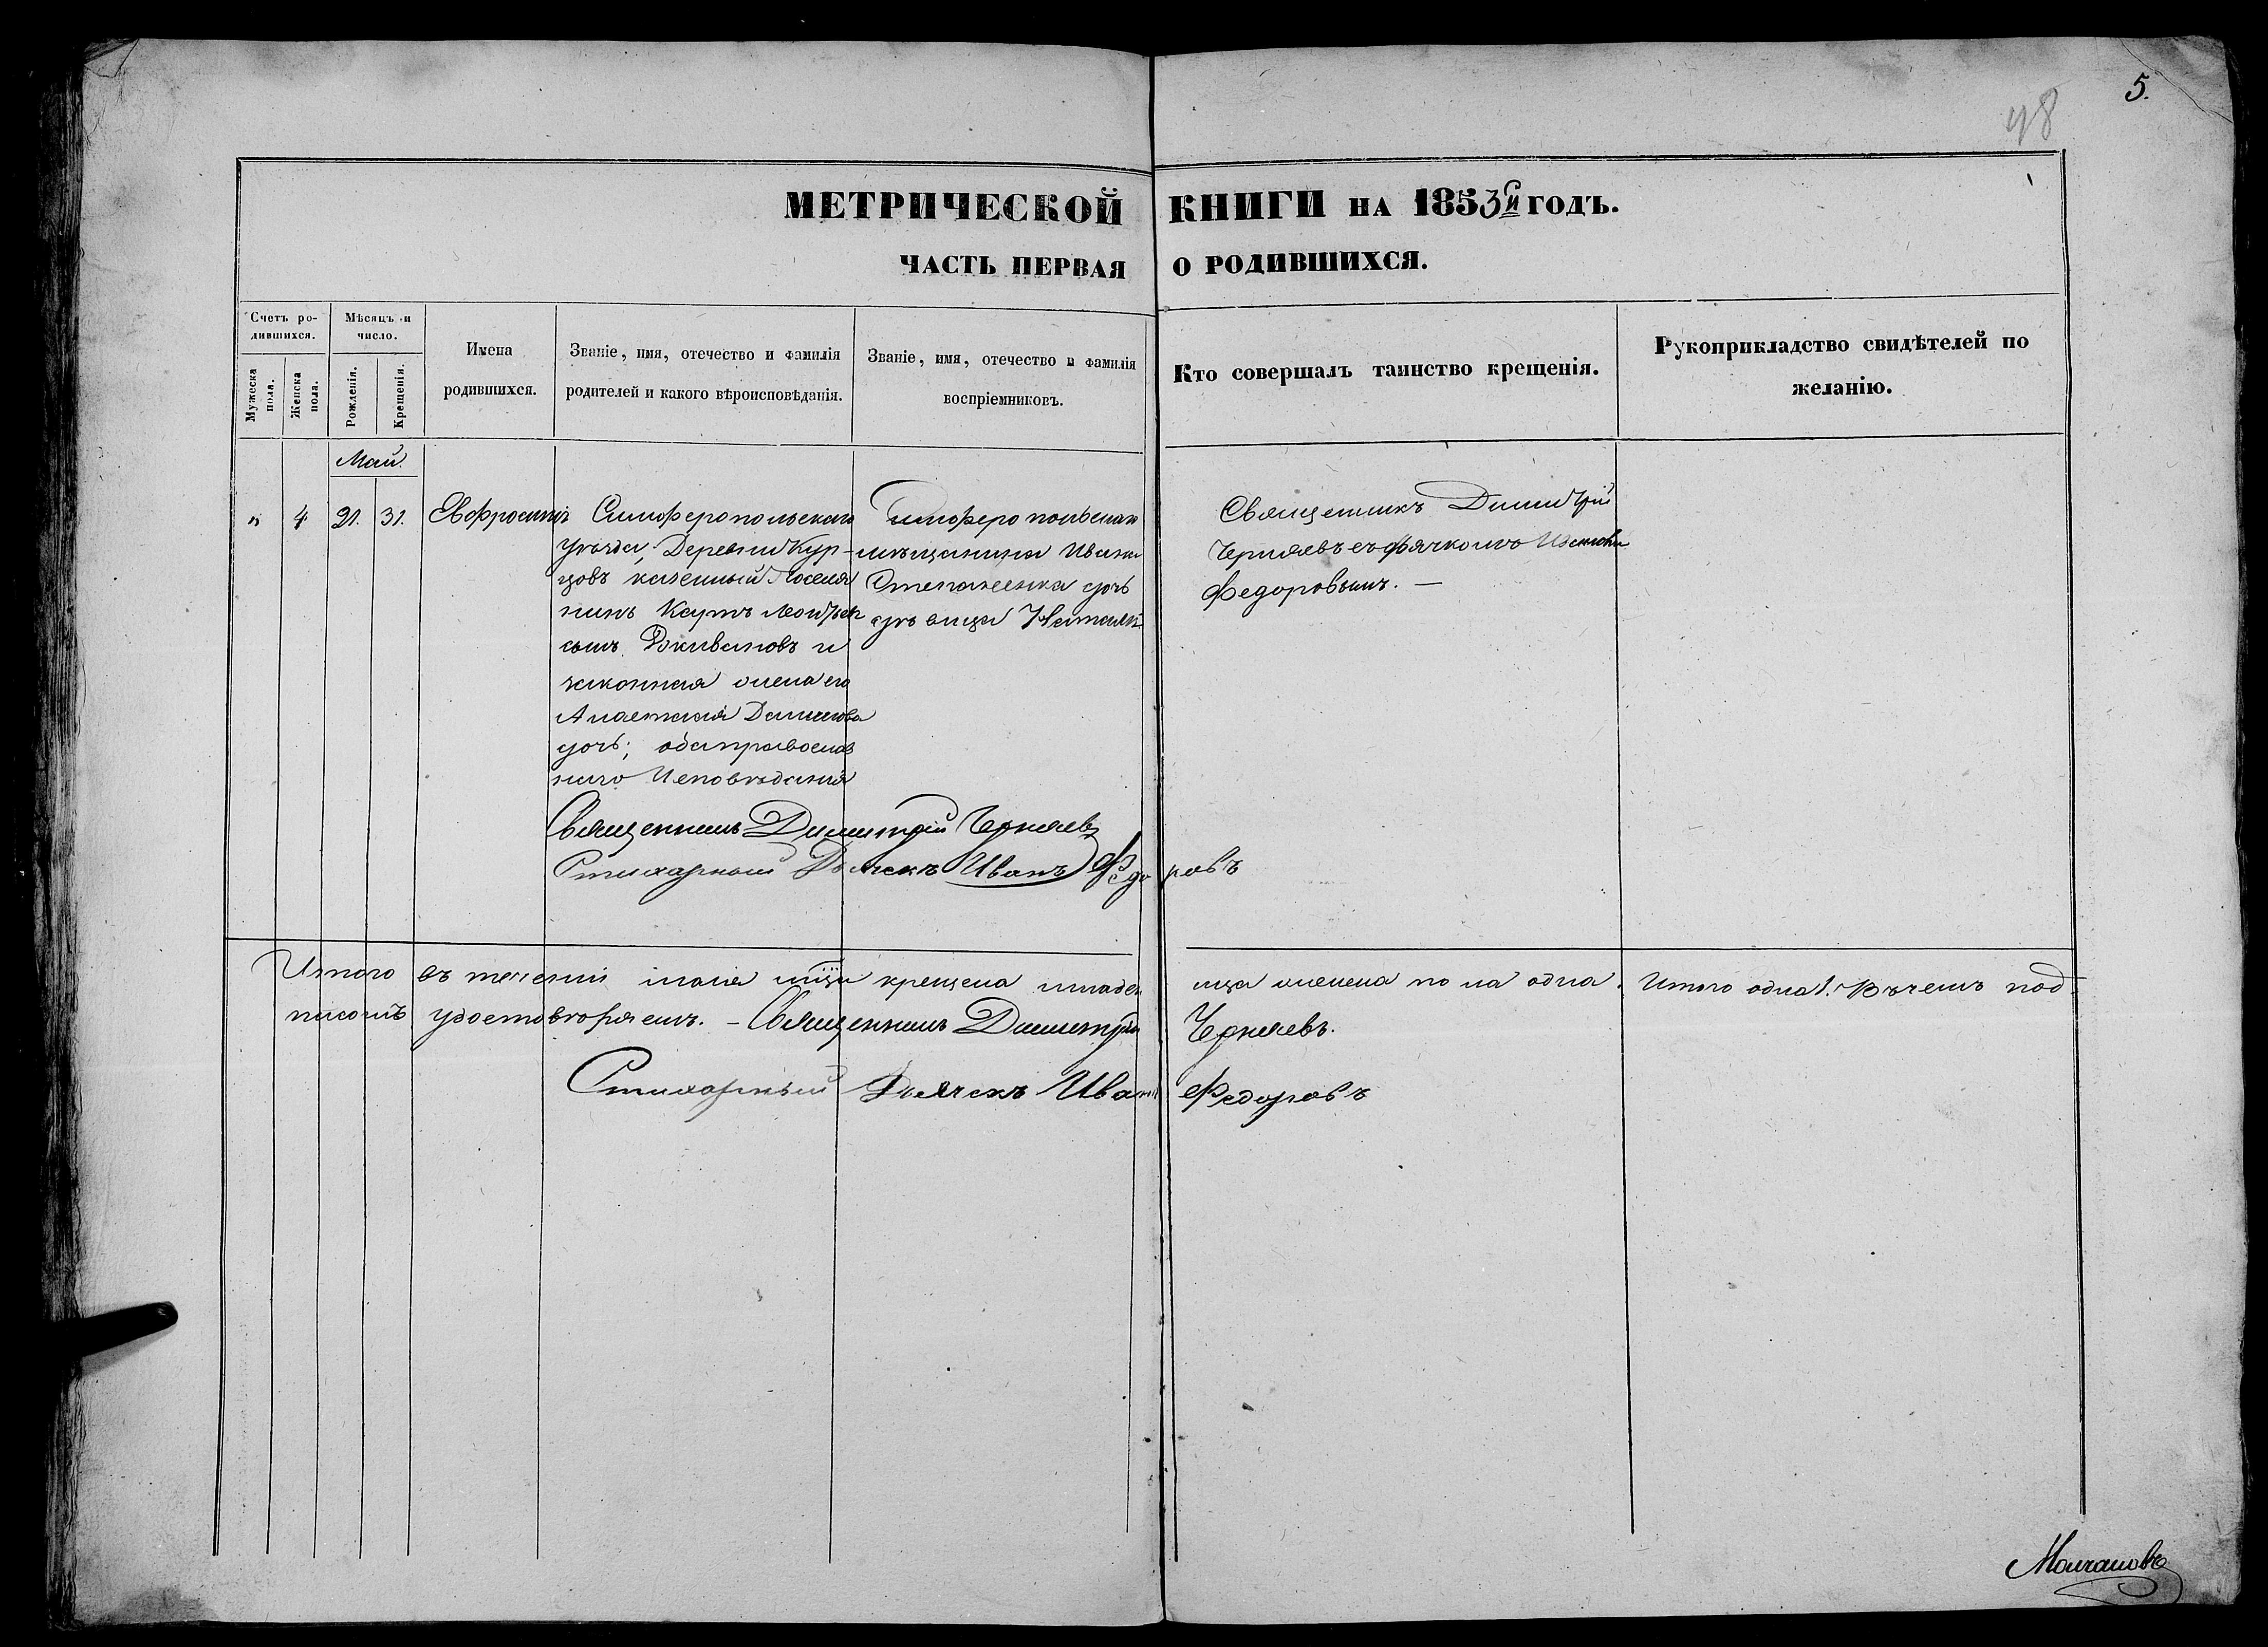 5.
98
МЕТРИЧЕСКОЙ КНИГИ НА 1853й ГОДЪ.
ЧАСТЬ ПЕРВАЯ О РОДИВШИХСЯ.
Счетъ ро-
дившихся.
Мужеска пола.
Женска пола.
Мѣсяцъ и
число.
Рожденія.
Крещенія.
Имена
родившихся.
Званіе, имя, отечество и фамилія
родителей и какого вѣроисповѣданія.
Званіе, имя, отечество и фамилія
воспріемниковъ.
Кто совершалъ таинство крещенія.
Рукоприкладство свидѣтелей по
желанію.
Май.
" 4 21. 31. Евфросинія
Симферопольскаго
уѣзда, Деревни Кур-
цовъ казенный Поселя
нинъ
сынъ Дживановъ и
законная жена его
Анастасія Данилова
дочь; оба православ
наго Исповѣданія
Симферопольскаго
мѣщанина Ивана
Степаненка дочь
дѣвица Наталія
Священникъ Димитрій
Черняевъ съ дячкомъ Иваномъ
Федоровымъ. —
Священникъ Димитрій Черняевъ
Стихарный Дьячекъ Иванъ Федоровъ
Итого въ теченіи маія мца крещена младеница женска пола одна. Итого одна 1. Въ чемъ под
писомъ удостовѣряемъ. – Священникъ Димитрій Черняевъ.
Стихарный Дьячекъ Иванъ Федоровъ
Молчановъ